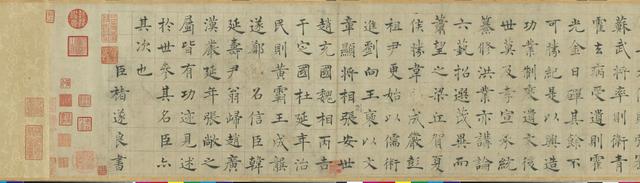 蘇武將率則衛青
霍去病受遺則霍
光金日磾其餘不
可勝紀是以興造
功業制度遺文後
世莫及孝宣承統
纂修洪業亦講論
六藝招選茂異而
蕭望之梁丘賀夏
侯勝韋成嚴彭
祖尹更始以儒術
進劉向王褒以文
章顯將相張安世
趙充國魏相丙吉
于定國杜延年治
民則黃霸王成龔
遂鄭召信臣韓
延壽尹翁歸趙廣
漢嚴延年張敞之
屬皆有功迹見述
於世參其名臣亦
其次也
臣褚遂良書